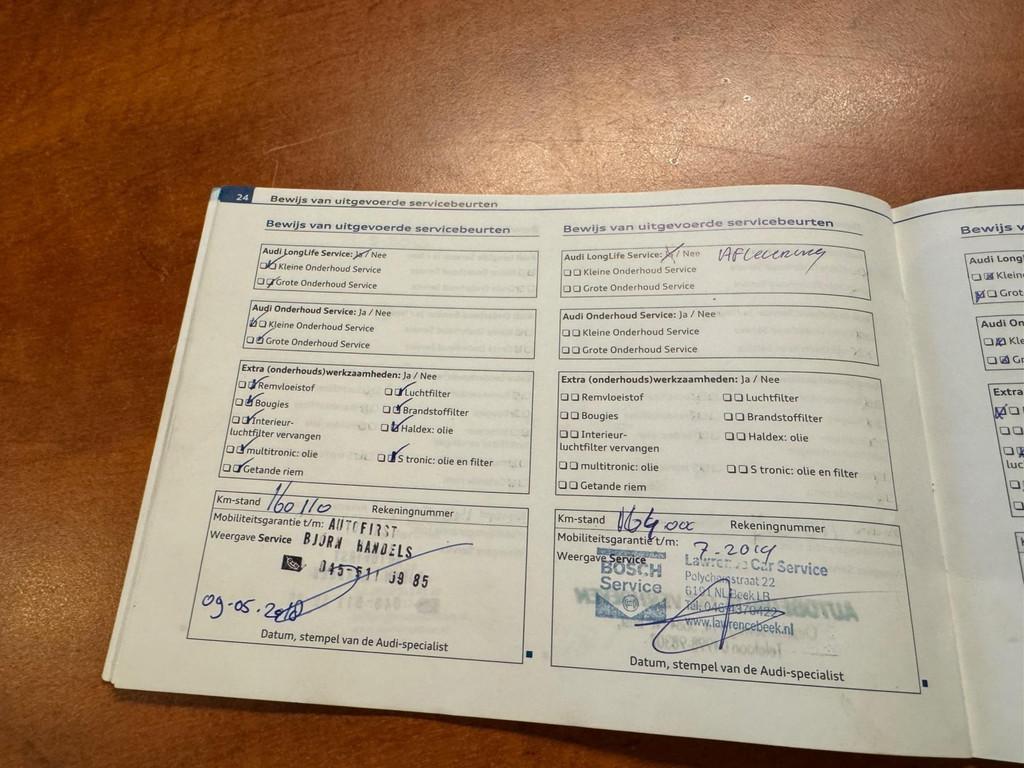 24
Bewijs van uitgevoerde servicebeurten
Bewijs van uitgevoerde servicebeurten
Audi LongLife Service: Ja / Nee
Kleine Onderhoud Service
Grote Onderhoud Service
Audi Onderhoud Service: Ja / Nee
Kleine Onderhoud Service
Grote Onderhoud Service
Extra (onderhouds)werkzaamheden: Ja / Nee
Remvloeistof
Luchtfilter
Bougies
Brandstoffilter
Interieur-
luchtfilter vervangen
Haldex: olie
multitronic: olie
S tronic: olie en filter
Getande riem
Km-stand 160110 Rekeningnummer
Mobiliteitsgarantie t/m: AUTOFIRST
Weergave Service BJORN HANDELS
09-05-2018
Datum, stempel van de Audi-specialist
Bewijs van uitgevoerde servicebeurten
Audi LongLife Service: Ja / Nee Aflevering
Kleine Onderhoud Service
Grote Onderhoud Service
Audi Onderhoud Service: Ja / Nee
Kleine Onderhoud Service
Grote Onderhoud Service
Extra (onderhouds)werkzaamheden: Ja / Nee
Remvloeistof
Luchtfilter
Bougies
Brandstoffilter
Interieur-
luchtfilter vervangen
Haldex: olie
multitronic: olie
S tronic: olie en filter
Getande riem
Km-stand 164000 Rekeningnummer
Mobiliteitsgarantie t/m: 7-2019
Weergave Service
BOSCH
Service
Lawrence Car Service
6191 NL Beek LB
www.lawrencebeek.nl
Datum, stempel van de Audi-specialist